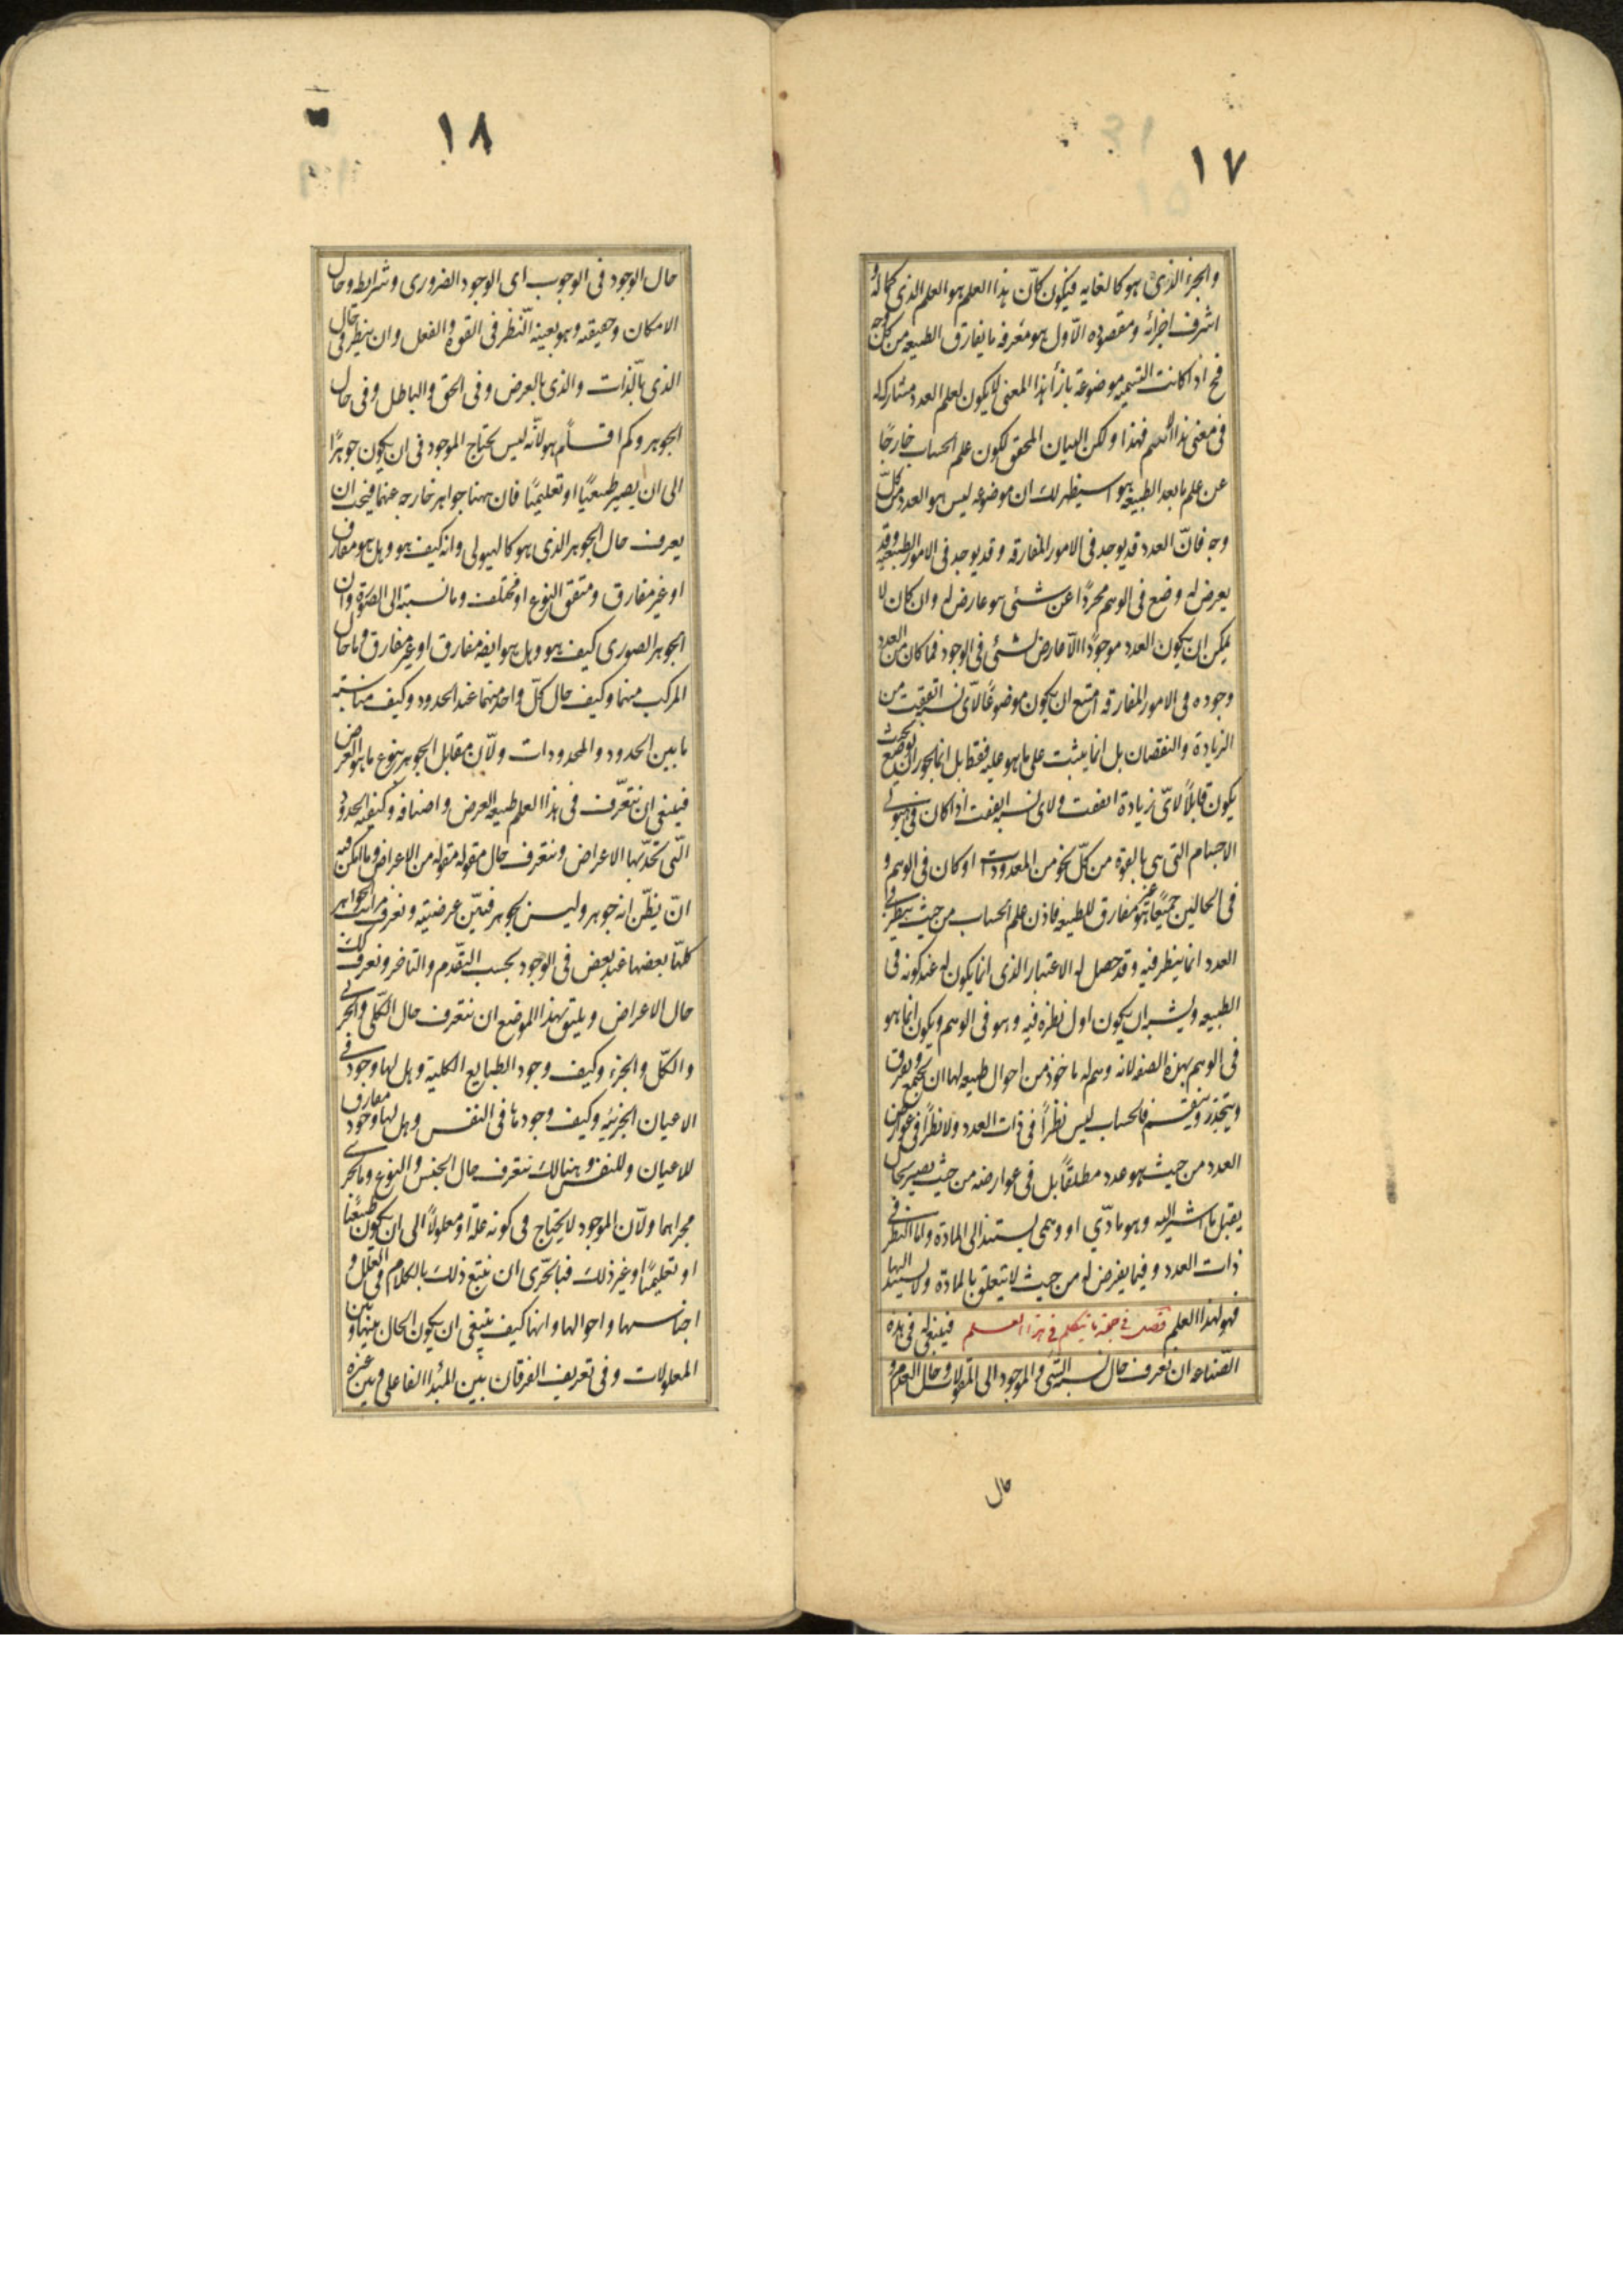 ١٧
والجزء الذى هو كالغايه فيكون كانّ هذا العلم هو العلم الذى كماله
اشرف اجزائه ومقصوده الاّول هو معرفه ما يفارق الطبيعه من كل وجه
فح اذا كانت التسميه موضوعة بازأ هذا المعنى لا يكون لعلم العدد مشاركه
فى معنى هذا الاسم فهذا ولكن البيان المحقق لكون علم الحساب خارجًا
عن علم ما بعد الطبيعه هو انه سيظهر لك ان موضوعه ليس هو العدد من كلّ
وجه فانّ العدد قد يوجد فى الامور المفارقه وقد يوجد فى الامور الطبيعيه وقد
يعرض له وضع فى الوهم مجردًا عن شئى هو عارض له وان كان لا
يمكن ان يكون العدد موجودًا الاّ عارض لشئى فى الوجود فما كان من العدد
وجوده فى الامور المفارقه امتنع ان يكون موضوعًا لاّى نسبه اتفقت من
الزيادة والنقصان بل انما يثبت على ما هو عليه فقط بل انما يجوز ان يوضع بحيث
يكون قابلًا لاىّ زيادة اتفقت ولاى نسبه اتفقت اذا كان فى هيولى
الاجسام التى هى بالقوة من كلّ نحو من المعدودات او كان فى الوهم و
فى الحالين جميعًا هو غير مفارق للطبيعه فاذن علم الحساب من حيث ينظر فى
العدد انما ينظر فيه وقد حصل له الاعتبار الذى انما يكون له عند كونه فى
الطبيعه ويشبه ان يكون اول نظره فيه وهو فى الوهم ويكون انما هو
فى الوهم بهذه الصفه لانه وهم له ماخوذ من احوال طبيعه لها ان يجتمع ويفرق
ويتجذر وينقسم فالحساب ليس نظرًا فى ذات العدد ولا نظرًا فى عوارض
العدد من حيث هو عدد مطلقًا بل فى عوارضه من حيث يصير بحال
يقبل ما اشير اليه وهو مادّي او وهمى يستند الى المادة واما النظر فى
ذات العدد وفيما يعرض له من حيث لا يتعلق بالمادة ولا يستند اليها
فهو لهذا العلم فصل فى جملة ما يتكلم فى هذا العلم فينبغى له فى هذه
الصّناعه ان نعرف حال نسبة الشئ والموجود الى المقولات وحال العدم و
حال
١٨
حال الوجود فى الوجوب اى الوجود الضرورى وشرايطه وحال
الامكان وحقيقته وهو بعينه النّظر فى القوة والفعل وان ينظر فى حال
الذى بالّذات والذى بالعرض وفى الحق والباطل وفى حال
الجوهر وكم اقسام هو لانّه ليس يحتاج الموجود فى ان يكون جوهرًا
الى ان يصير طبيعيًا او تعليميًا فان ههنا جواهر خارجه عنهما فيجب ان
يعرف حال الجوهر الذى هو كالهيولى وانه كيف هو وهل هو مفارق
او غير مفارق ومتفق النوع او مختلف وما نسبته الى الصورة وان
الجوهر الصورى كيف هو وهل هو ايضه مفارق او غير مفارق وما حال
المركب منهما وكيف حال كلّ واحد منهما عند الحدود وكيف مناسبته
ما بين الحدود والمحدودات ولاّن مقابل الجوهر بنوع ما هو العرض
فينبغى ان نتعّرف فى هذا العلم طبيعه العرض واصنافه وكيفيه الحدود
الّتى تحدّ بها الاعراض ونتعرف حال مقوله مقوله من الاعراض وما امكن فيه
انّ يظّن انه جوهر وليس بجوهر فنبيّن عرضيته ونعرف مراتب الجواهر
كلّها بعضها عند بعض فى الوجود بحسب التقّدم والتاخر ونعرف كذلك
حال الاعراض ويليق بهذا الموضع ان نتعّرف حال الكلّى والجزئى
والكلّ والجزء وكيف وجود الطبايع الكلية وهل لها وجود فى
الاعيان الجزئيه وكيف وجودها فى النفس وهل لها وجود مفارق
للاعيان وللنفس وهنالك نتعرف حال الجنس والنوع وما يجرى
مجراهما ولاّن الموجود لا يحتاج فى كونه علة او معلولًا الى ان يكون طبيعيًا
او تعليميًا او غير ذلك فبالحّرى ان نتبع ذلك بالكلام فى العلل و
اجناسها واحوالها وانها كيف ينبغى ان يكون الحال بينها وبين
المعلولات وفى تعريف الفرقان بين المبدأ الفاعلى وبين غيره